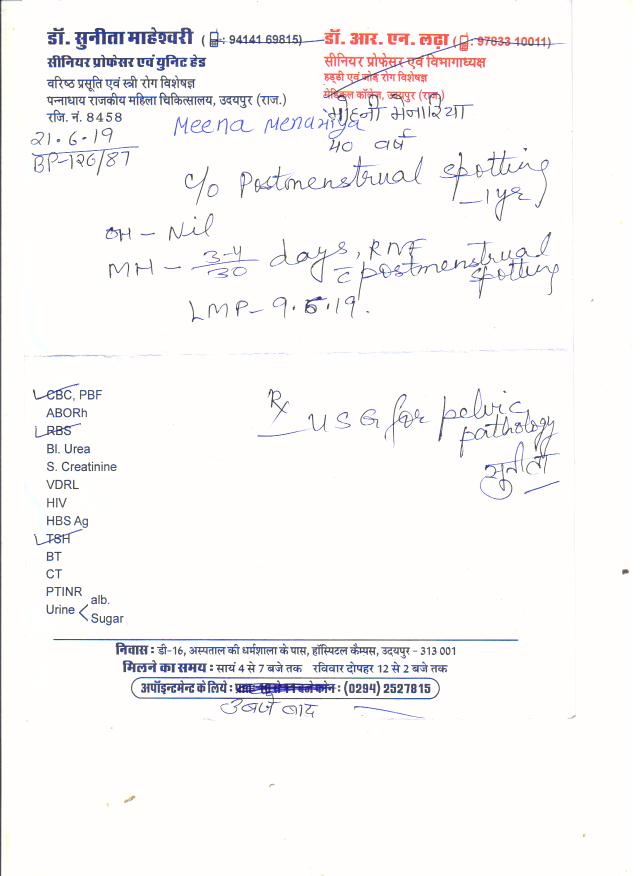 डॉ. सुनीता माहेश्वरी ( : 94141 69815)
सीनियर प्रोफेसर एवं यूनिट हेड
वरिष्ठ प्रसूति एवं स्त्री रोग विशेषज्ञ
पन्नाधाय राजकीय महिला चिकित्सालय, उदयपुर (राज.)
रजि. नं. 8458
डॉ. आर. एन. लढ़ा ( : 97833 10011)
सीनियर प्रोफेसर एवं विभागाध्यक्ष
हड्डी एवं जोड़ रोग विशेषज्ञ
मेडिकल कॉलेज, उदयपुर (राज.)
21.6.19
BP-126/87
Meena Menariya
मोहनी मेनारिया
40 वर्ष
C/o Postmenstrual spotting
- 1yr
OH - Nil
MH - 3-4/30 days, RNF
c̄ postmenstrual
spotting
LMP - 9.6.19.
CBC, PBF
ABORh
RBS
Bl. Urea
S. Creatinine
VDRL
HIV
HBS Ag
TSH
BT
CT
PTINR
Urine < alb.
Sugar
Rx
USG for pelvic
pathology
सुनीता
निवास : डी-16, अस्पताल की धर्मशाला के पास, हॉस्पिटल कैम्पस, उदयपुर - 313 001
मिलने का समय : सायं 4 से 7 बजे तक रविवार दोपहर 12 से 2 बजे तक
अपॉइन्टमेन्ट के लिये : प्रातः 10 से 11 बजे फोन : (0294) 2527815
3 बजे बाद